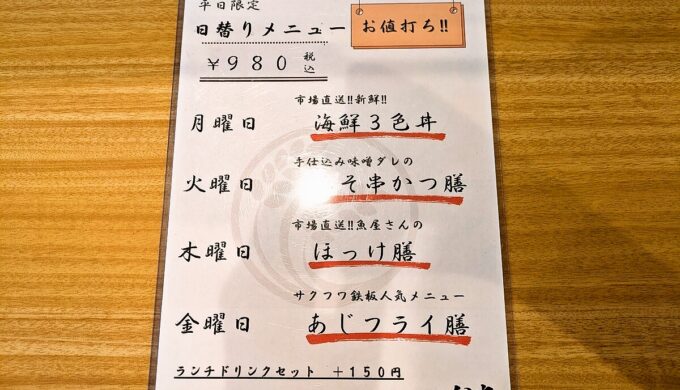 平日限定
日替りメニュー
お値打ち!!
￥９８０ 税込
市場直送!!新鮮!!
月曜日 海鮮３色丼
手仕込み味噌ダレの
火曜日 そ串かつ膳
市場直送!!魚屋さんの
木曜日 ほっけ膳
サクフワ鉄板人気メニュー
金曜日 あじフライ膳
ランチドリンクセット ＋１５０円